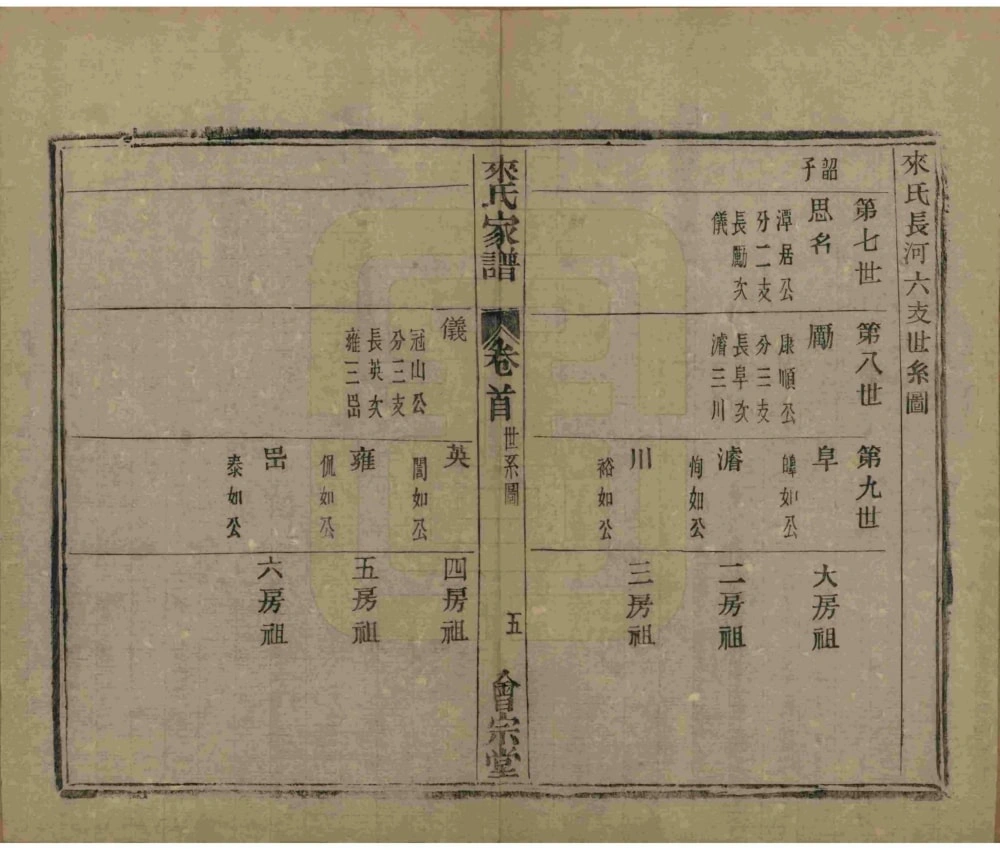 來氏長河六支世系圖
第七世
韶子
思名
潭居公
分二支
長勵次
儀
第八世
勵
康順公
分三支
長阜次
濬三川
第九世
阜
皥如公
大房祖
濬
恂如公
二房祖
川
裕如公
三房祖
來氏家譜
卷首
世系圖
五
會宗堂
儀
冠山公
分三支
長英次
雍三嵒
英
誾如公
四房祖
雍
侃如公
五房祖
嵒
泰如公
六房祖